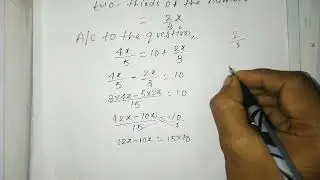 two-thirds of the number
= 2x/3
A/C to the question,
4x/5 = 10 + 2x/3
4x/5 - 2x/3 = 10
3×4x-5×2x/15 = 10
12x-10x/15 = 10/1
12x-10x = 15×10
2
1